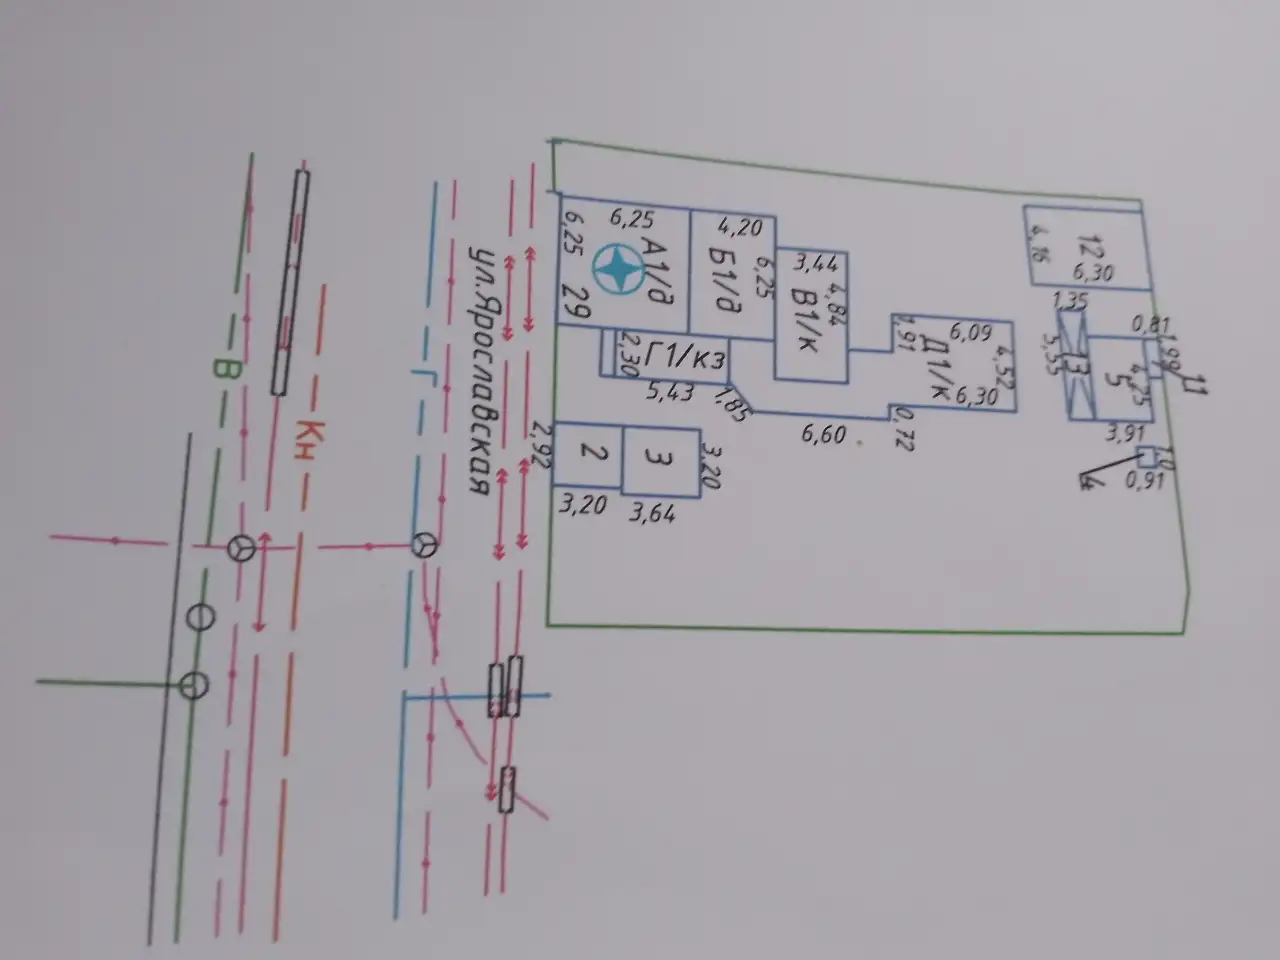 6,25
6,25
А1/д
29
4,20
Б1/д
6,25
3,44
4,84
В1/к
1,91
6,09
Д1/к
4,52
6,30
0,72
2,30
Г1/кз
5,43
1,85
6,60
2,92
2
3
3,20
3,20
3,64
12
4,16
6,30
1,35
5,55
13
0,81
1,99
11
5
4,25
3,91
1,0
4
0,91
ул.Ярославская
В
Кн
Г